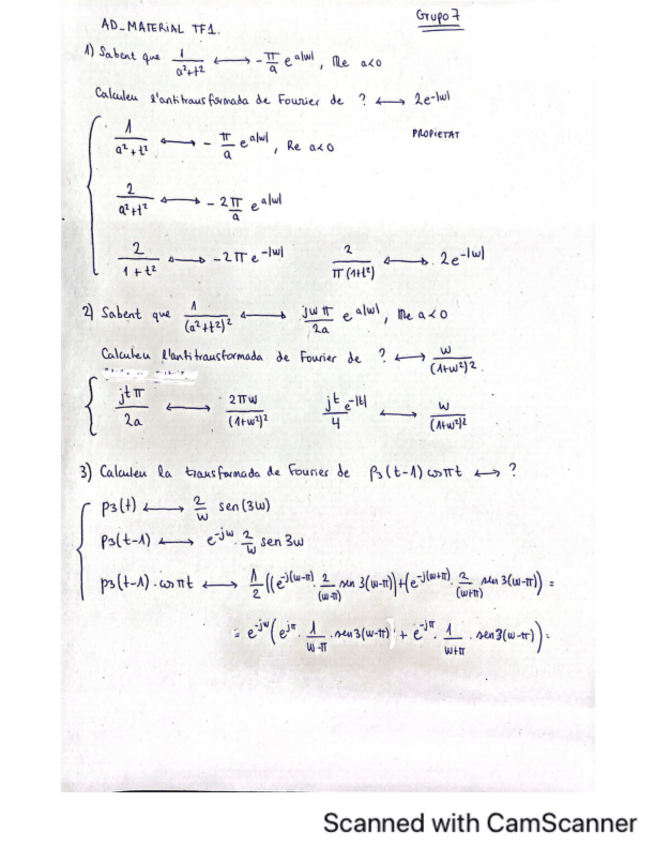 Grupo 7
AD_MATERIAL TF1.
1) Sabent que 1/(a²+t²) ⟷ -π/a e^{a|w|}, Re a<0
Calculeu l'antitransformada de Fourier de ? ⟷ 2e^{-|w|}
1/(a²+t²) ⟷ - π/a e^{a|w|}, Re a<0
PROPIETAT
2/(a²+t²) ⟷ - 2π/a e^{a|w|}
2/(1+t²) ⟷ -2π e^{-|w|} 2/(π(1+t²)) ⟷ 2e^{-|w|}
2) Sabent que 1/(a²+t²)² ⟷ jwπ/2a e^{a|w|}, Re a<0
Calculeu l'antitransformada de Fourier de ? ⟷ w/(1+w²)².
jtπ/2a ⟷ 2πw/(1+w²)² jt/4 e^{-|t|} ⟷ w/(1+w²)²
3) Calculeu la transformada de Fourier de p3(t-1) cosπt ⟷ ?
p3(t) ⟷ 2/w sen(3w)
p3(t-1) ⟷ e^{-jw} · 2/w sen 3w
p3(t-1) · cosπt ⟷ 1/2 ((e^{-j(w-π)} · 2/(w-π) sen 3(w-π)) + (e^{-j(w+π)} · 2/(w+π) sen 3(w-π)) =
= e^{-jw} (e^{jπ} · 1/(w-π) · sen3(w-π) + e^{-jπ} · 1/(w+π) · sen3(w-π)) =
Scanned with CamScanner